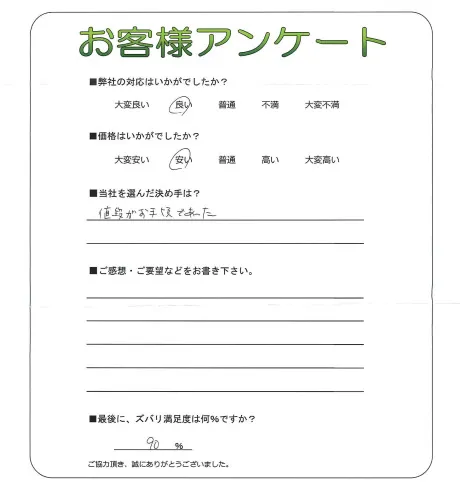 お客様アンケート
■弊社の対応はいかがでしたか？
大変良い 良い 普通 不満 大変不満
■価格はいかがでしたか？
大変安い 安い 普通 高い 大変高い
■当社を選んだ決め手は？
値段がお手頃でした
■ご感想・ご要望などをお書き下さい。
■最後に、ズバリ満足度は何％ですか？
90 ％
ご協力頂き、誠にありがとうございました。